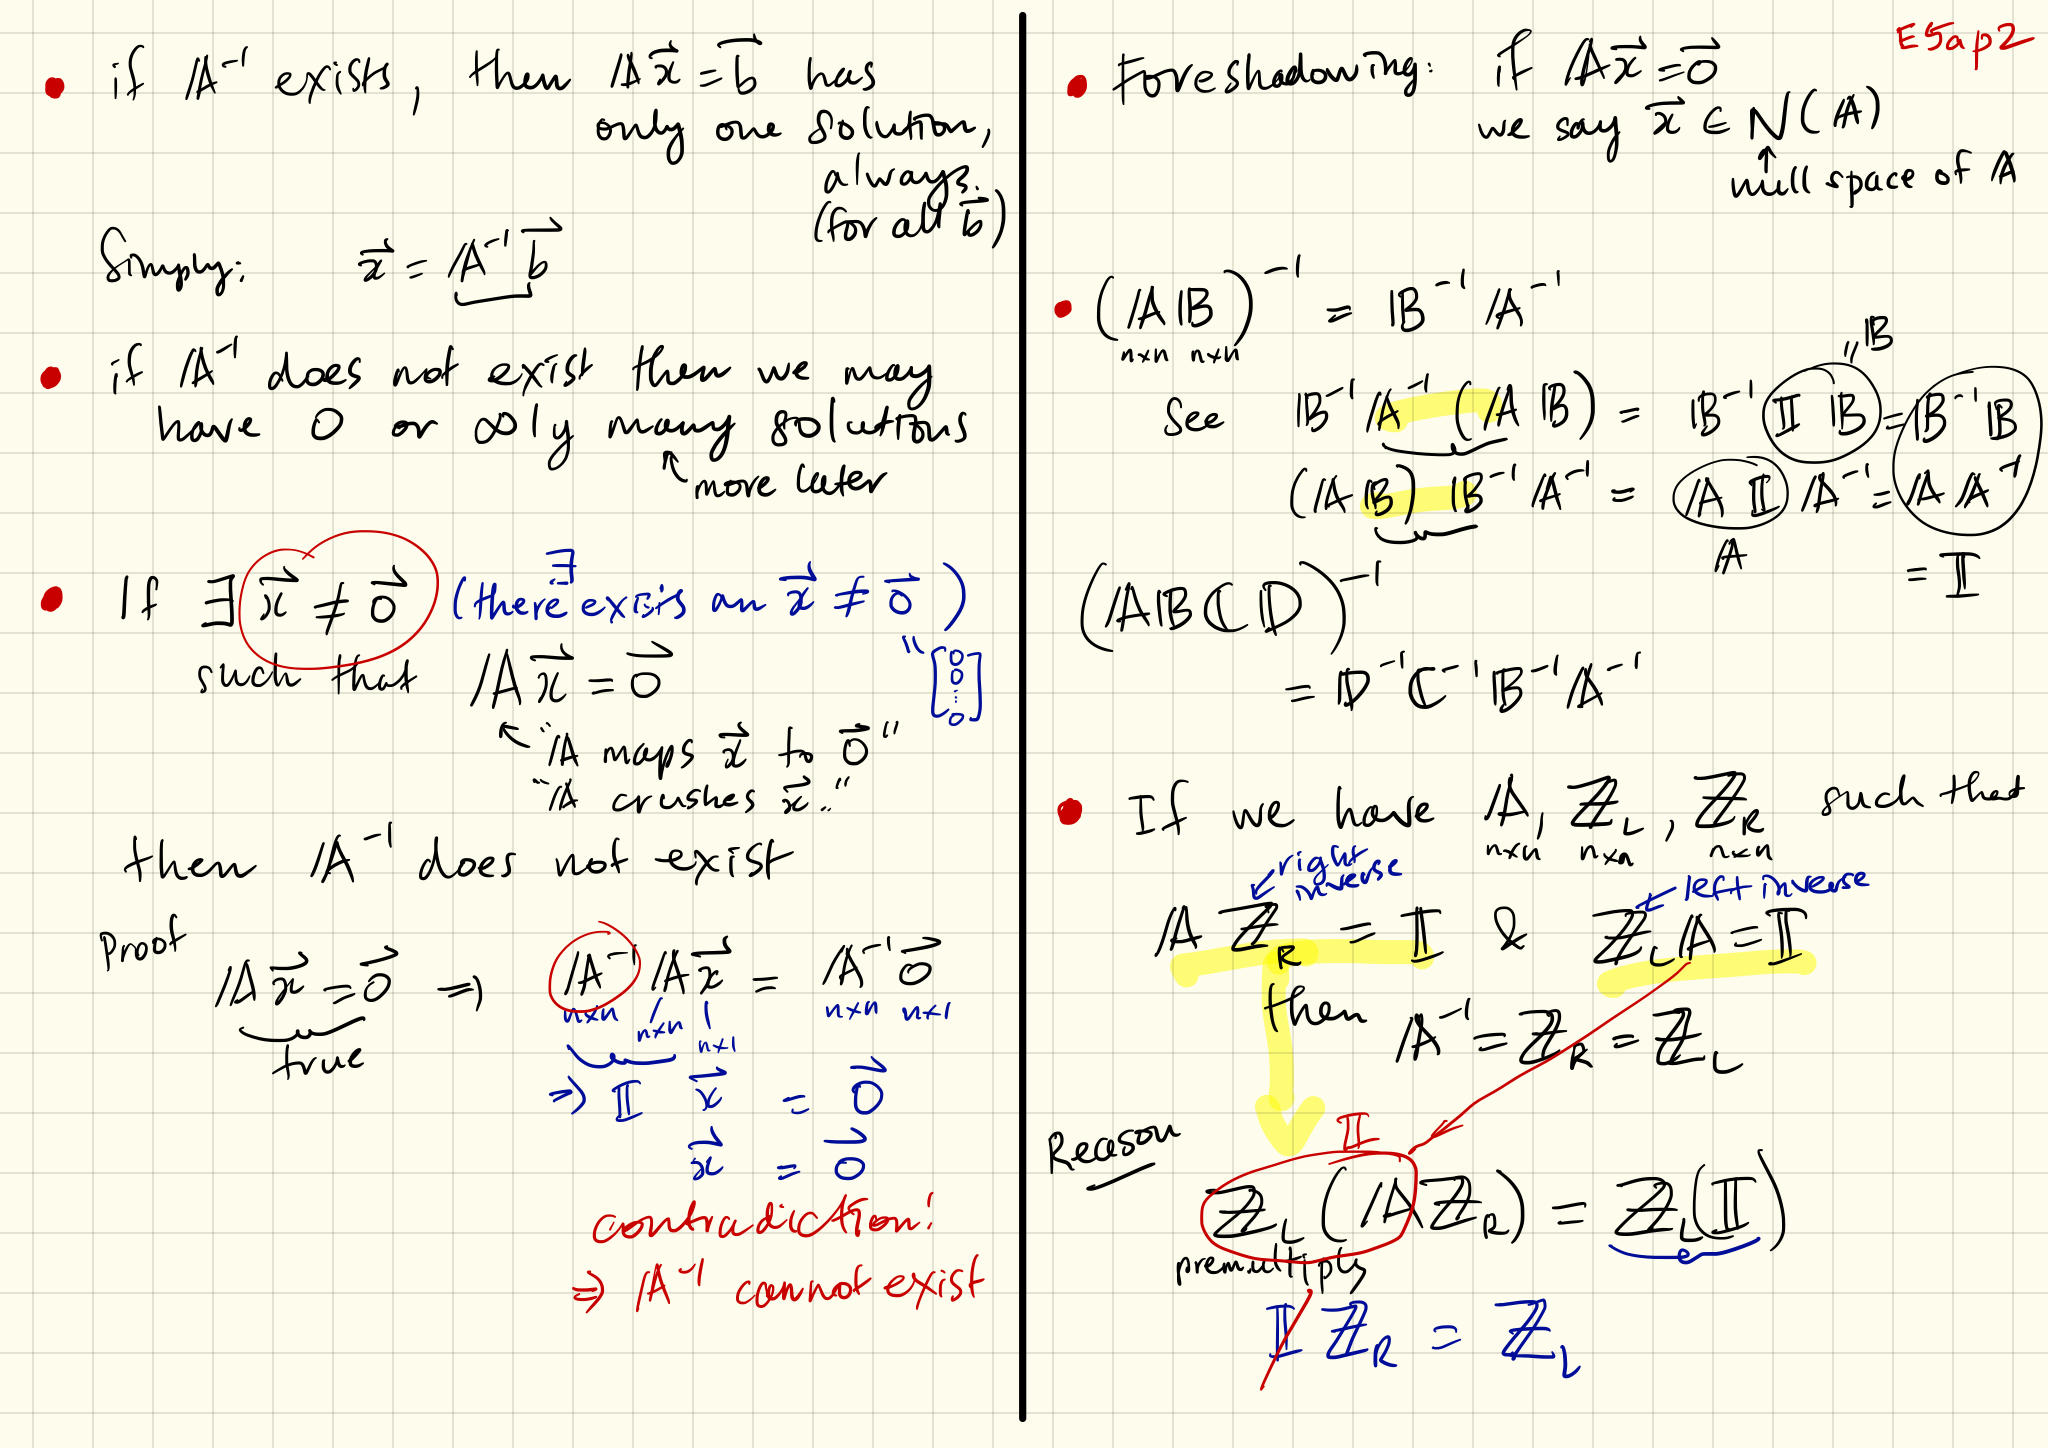 • if A⁻¹ exists, then Ax⃗ = b⃗ has
only one solution,
always.
(for all b⃗)
Simply: x⃗ = A⁻¹b⃗
• if A⁻¹ does not exist then we may
have 0 or ∞ly many solutions
↖ more later
• If ∃ x⃗ ≠ 0⃗ (there exists an x⃗ ≠ 0⃗)
∃
such that Ax⃗ = 0⃗
" [0 0 ⋮ 0]
↖ "A maps x⃗ to 0⃗"
"A crushes x⃗."
then A⁻¹ does not exist
Proof
Ax⃗ = 0⃗ ⇒ A⁻¹Ax⃗ = A⁻¹0⃗
n×n n×n n×1 n×n n×1
true
⇒ 𝕀 x⃗ = 0⃗
x⃗ = 0⃗
contradiction!
⇒ A⁻¹ cannot exist
E5ap2
• Foreshadowing: if Ax⃗ = 0⃗
we say x⃗ ∈ N(A)
↑
null space of A
• (AB)⁻¹ = B⁻¹A⁻¹
n×n n×n
" B
See B⁻¹A⁻¹(AB) = B⁻¹𝕀B = B⁻¹B
(AB)B⁻¹A⁻¹ = A𝕀A⁻¹ = AA⁻¹
A
= 𝕀
(ABCD)⁻¹
= D⁻¹C⁻¹B⁻¹A⁻¹
• If we have A, Z_L, Z_R such that
n×n n×n n×n
right inverse
left inverse
A Z_R = 𝕀 & Z_L A = 𝕀
then A⁻¹ = Z_R = Z_L
Reason
𝕀
Z_L(AZ_R) = Z_L(𝕀)
premultiply
𝕀 Z_R = Z_L